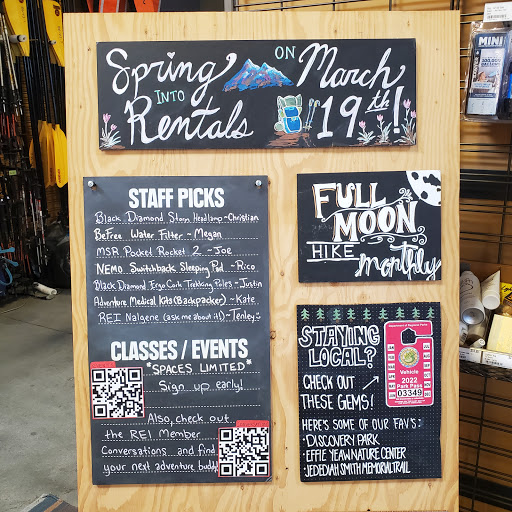 Spring INTO Rentals ON March 19th!
STAFF PICKS
Black Diamond Storm Headlamp ~Christian
BeFree Water Filter ~ Megan
MSR Pocket Rocket 2 ~ Joe
NEMO Switchback Sleeping Pad ~ Rico
Black Diamond Ergo Cork Trekking Poles ~ Justin
Adventure Medical Kits (Backpacker) ~ Kate
REI Nalgene (ask me about it!) ~ Tenley
CLASSES / EVENTS
*SPACES LIMITED*
Sign up early!
Also, check out
the REI Member
Conversations and find
your next adventure buddy
FULL
MOON
HIKE
monthly
STAYING
LOCAL?
CHECK OUT
THESE GEMS!
HERE'S SOME OF OUR FAV'S:
· DISCOVERY PARK
· EFFIE YEAW NATURE CENTER
· JEDEDIAH SMITH MEMORIAL TRAIL
Department of Regional Parks
Vehicle
2022
Park Pass
03349
MINI